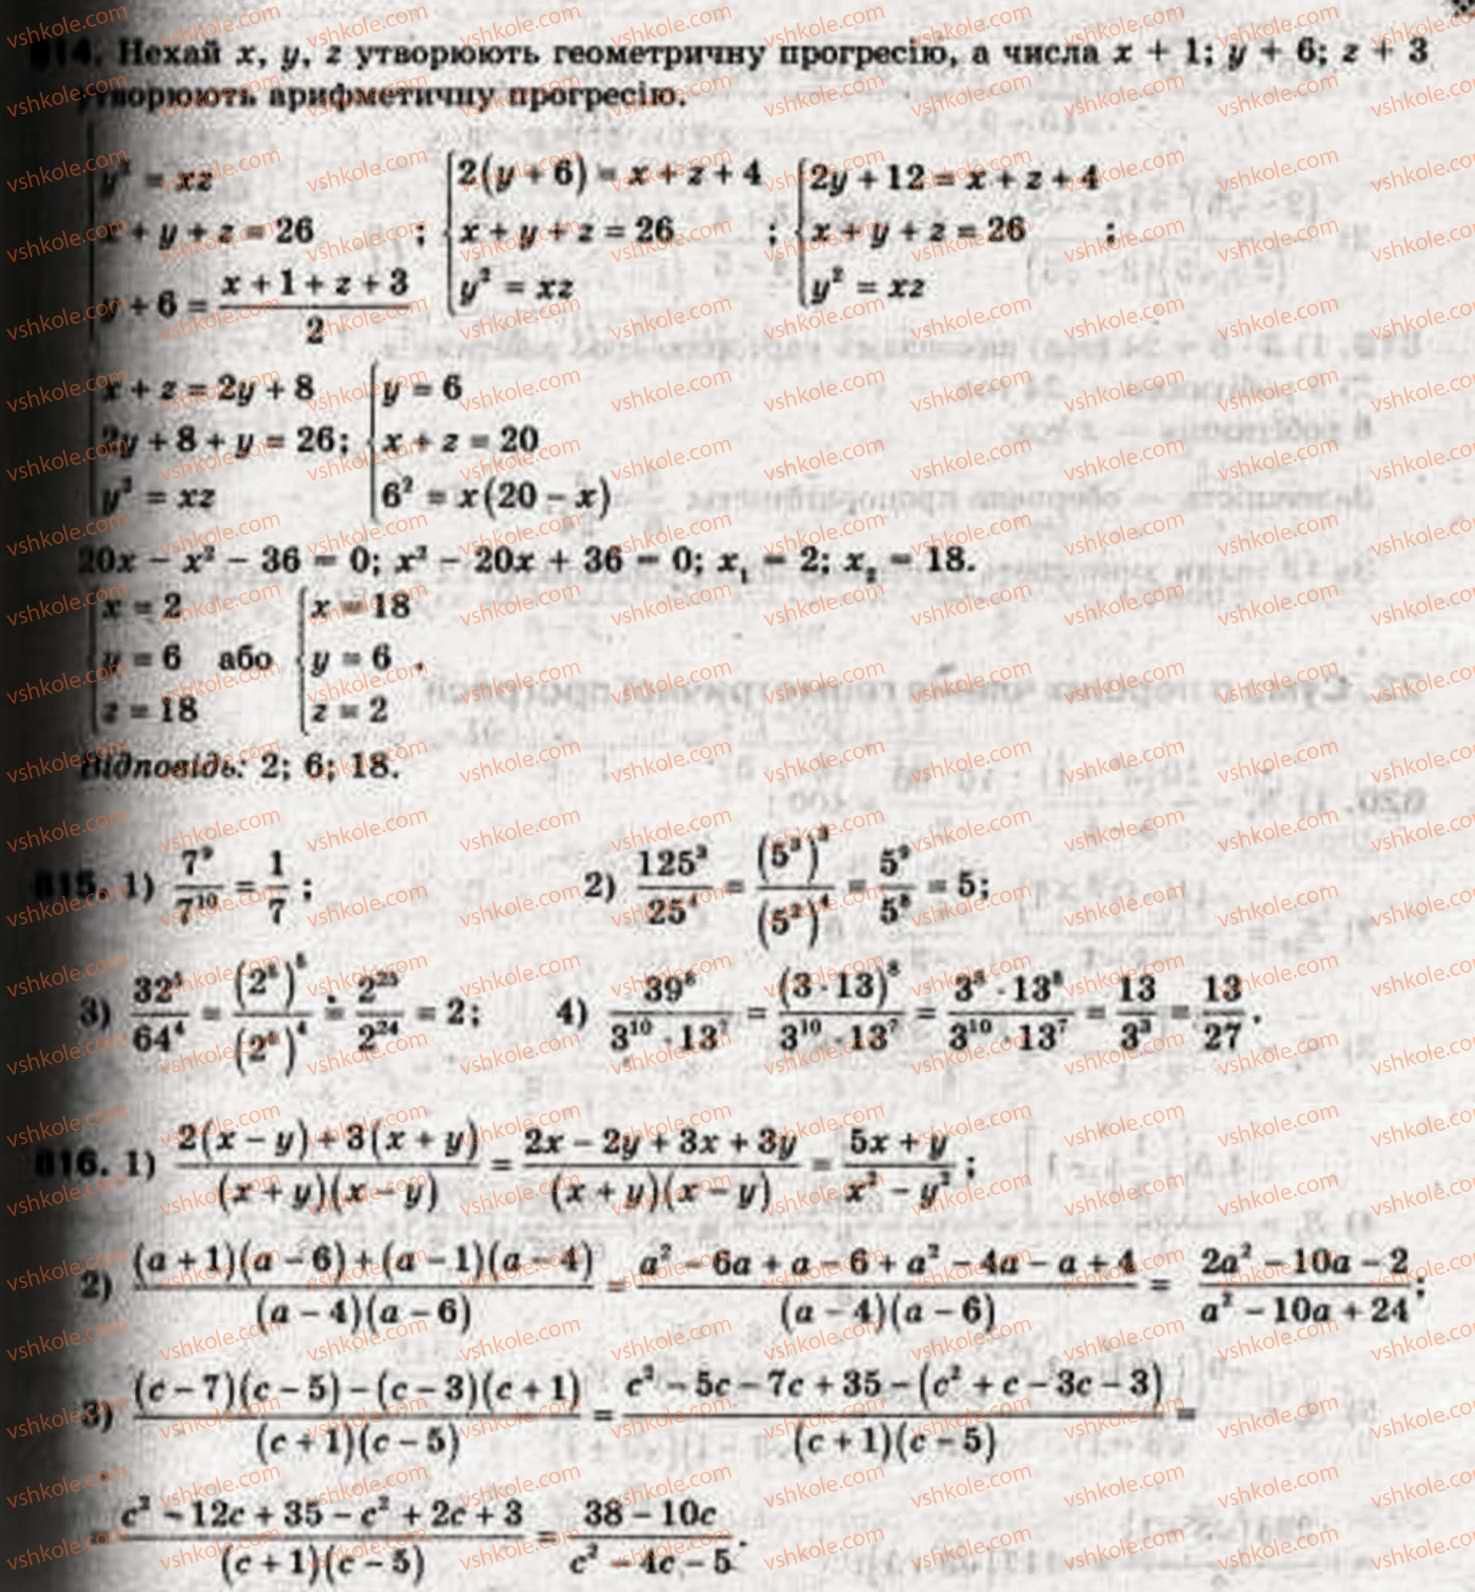 814. Нехай x, y, z утворюють геометричну прогресію, а числа x + 1; y + 6; z + 3
утворюють арифметичну прогресію.
{y² = xz; x + y + z = 26; y + 6 = (x + 1 + z + 3)/2 ; {2(y + 6) = x + z + 4; x + y + z = 26; y² = xz ; {2y + 12 = x + z + 4; x + y + z = 26; y² = xz ;
{x + z = 2y + 8; 2y + 8 + y = 26; y² = xz ; {y = 6; x + z = 20; 6² = x(20 − x)
20x − x² − 36 = 0; x² − 20x + 36 = 0; x₁ = 2; x₂ = 18.
{x = 2; y = 6; z = 18 або {x = 18; y = 6; z = 2 .
Відповідь: 2; 6; 18.
815. 1) 7⁹/7¹⁰ = 1/7 ; 2) 125³/25⁴ = (5³)³/(5²)⁴ = 5⁹/5⁸ = 5;
3) 32⁵/64⁴ = (2⁵)⁵/(2⁶)⁴ = 2²⁵/2²⁴ = 2; 4) 39⁸/(3¹⁰ · 13⁷) = (3 · 13)⁸/(3¹⁰ · 13⁷) = (3⁸ · 13⁸)/(3¹⁰ · 13⁷) = 13/3³ = 13/27 .
816. 1) (2(x − y) + 3(x + y))/((x + y)(x − y)) = (2x − 2y + 3x + 3y)/((x + y)(x − y)) = (5x + y)/(x² − y²) ;
2) ((a + 1)(a − 6) + (a − 1)(a − 4))/((a − 4)(a − 6)) = (a² − 6a + a − 6 + a² − 4a − a + 4)/((a − 4)(a − 6)) = (2a² − 10a − 2)/(a² − 10a + 24) ;
3) ((c − 7)(c − 5) − (c − 3)(c + 1))/((c + 1)(c − 5)) = (c² − 5c − 7c + 35 − (c² + c − 3c − 3))/((c + 1)(c − 5)) =
= (c² − 12c + 35 − c² + 2c + 3)/((c + 1)(c − 5)) = (38 − 10c)/(c² − 4c − 5) .
vshkole.com